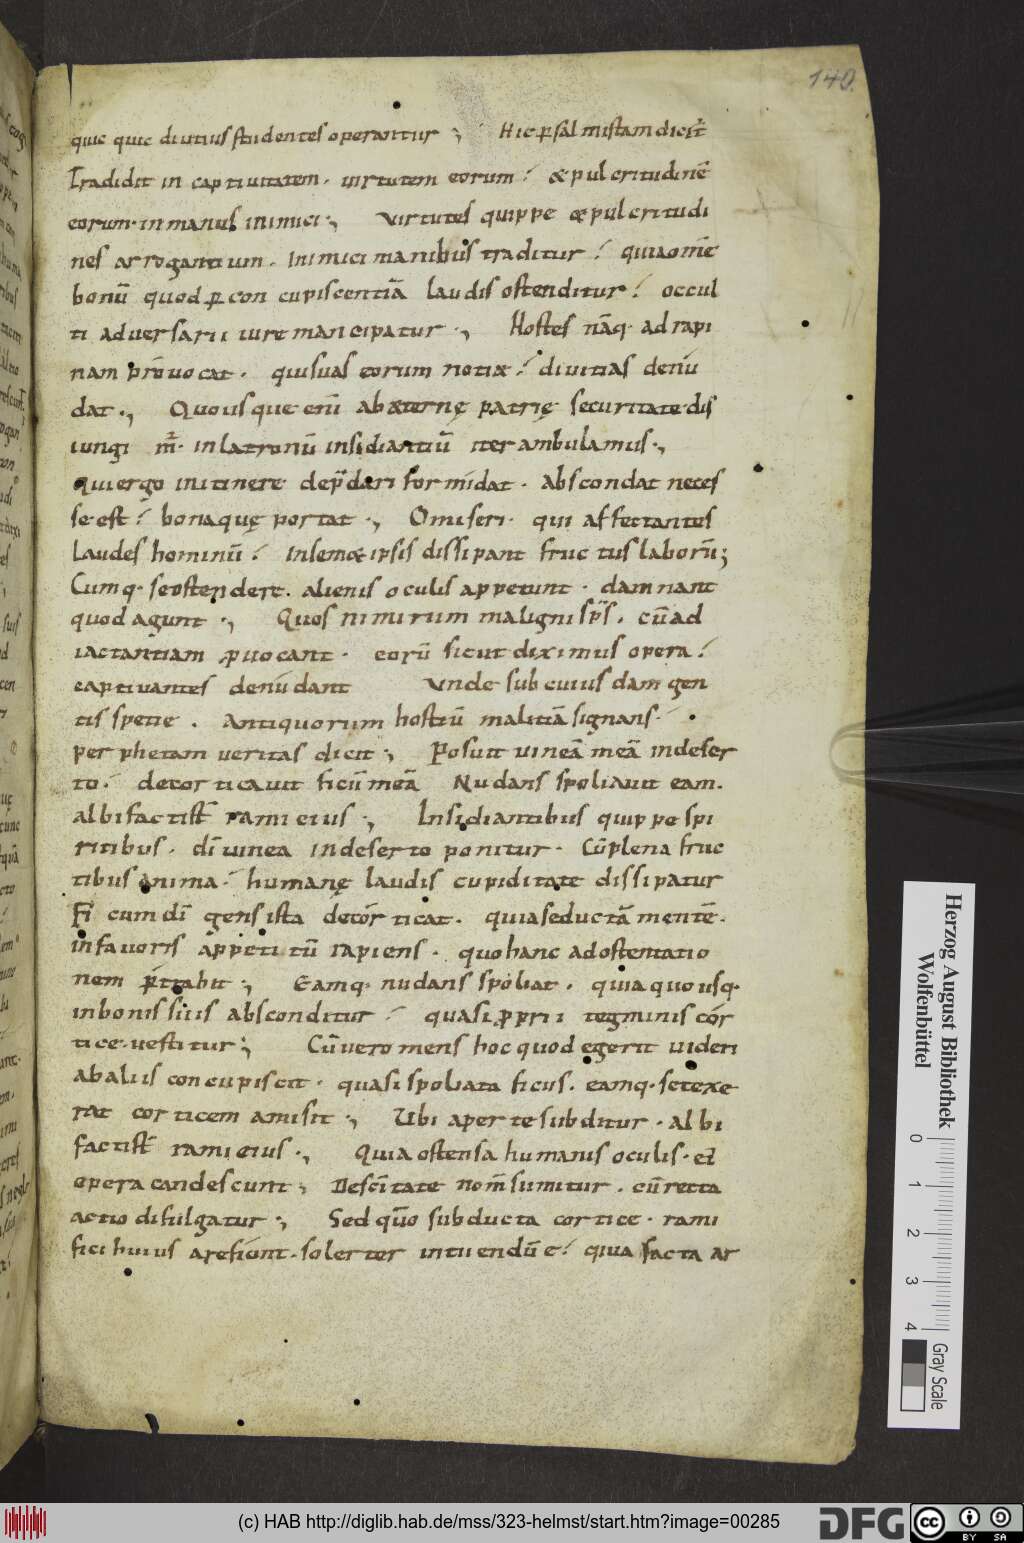 140.
quic quic diutius studentes operantur ·, Hic ꝑsalmistam dicit̄
Tradidit in captiuitatem. uirtutem eorum. & pulcritudinē
eorum. in manus inimici ·, Virtutes quippe & pulcritudi
nes arrogantium. inimici manibus traditur. quia om̄e
bonū quod ꝑ concupiscentiā laudis ostenditur. occul
ti aduersarii iure mancipatur ·, Hostes nāq. ad rapi
nam p̄rouocat. qui suas eorum notiæ. diuitias denu
dat ·, Quousque eni ab æternę patrię securitate dis
iungimr̄. in latronū insidiantiū iter ambulamus ·,
Qui ergo in itinere dep̄dari formidat. abscondat neces
se est. bona quę portat ·, O miseri. qui affectantes
laudes hominū. insemet ipsis dissipant fructus laborū;
Cumq. se ostendere. alienis oculis appetunt. damnant
quod agunt ·, Quos nimirum maligni sp̄s. cū ad
iactantiam ꝓuocant. eorū sicut diximus opera.
captiuantes denudant Unde sub cuiusdam gen
tis spetie. antiquorum hostiū malitiā signans.
per phetam ueritas dicit ·, Posuit uineā meā in deser
to. decorticauit ficū meā Nudans spoliauit eam.
albi facti sr̄ rami eius ·, Insidiantibus quippe spi
ritibus. dī uinea in deserto ponitur. Cū plena fruc
tibus anima. humanę laudis cupiditate dissipatur
Fi cum dī gens ista decorticat. quia seductā mentē.
in fauoris appetitū rapiens. quo hanc ad ostentatio
nem p̄trahit ·, Eamq. nudans spoliat. quia quousq.
in bonis suis absconditur. quasi ꝓprii tegminis cor
tice uestitur ·, Cū uero mens hoc quod egerit uideri
ab aliis concupiscit. quasi spoliata ficus. eamq. se texe
rat corticem amisit ·, Ubi aperte subditur. albi
facti sr̄ rami eius ·, Quia ostensa humanis oculis. ei
opera candescunt ·, De scītate nom̄ sumitur. cū recta
actio difulgatur ·, Sed quō subducta cortice. rami
fici huius arefiunt. solerter intuendū ē. quia facta ar
Herzog August Bibliothek
Wolfenbüttel
0 1 2 3 4
Gray Scale
(c) HAB http://diglib.hab.de/mss/323-helmst/start.htm?image=00285
DFG
cc BY SA